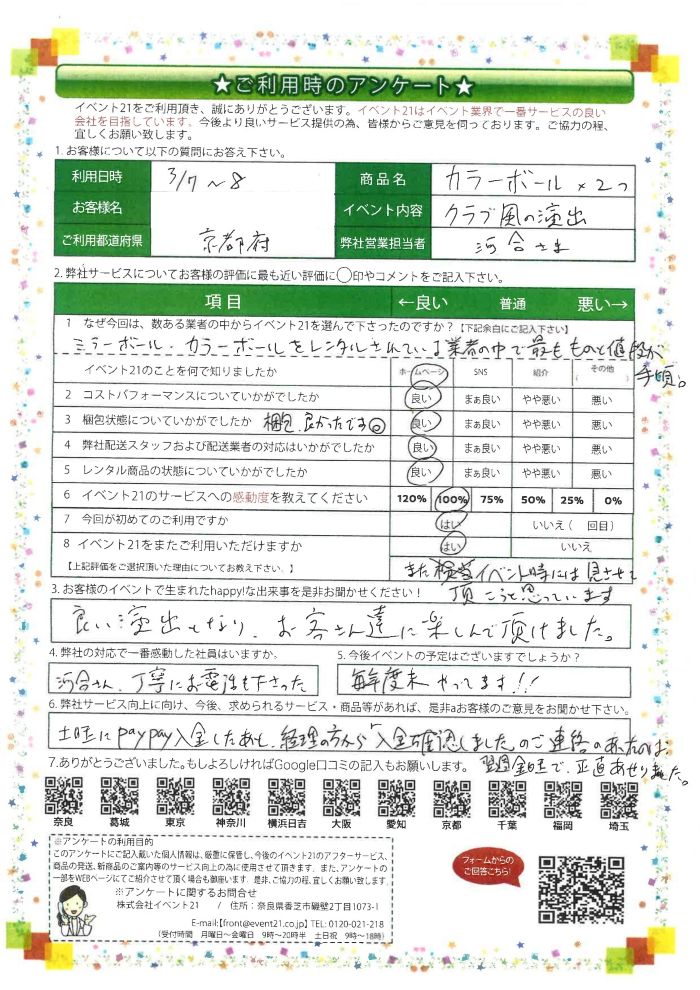 ★ご利用時のアンケート★
イベント21をご利用頂き、誠にありがとうございます。イベント21はイベント業界で一番サービスの良い
会社を目指しています。今後より良いサービス提供の為、皆様からご意見を伺っております。ご協力の程、
宜しくお願い致します。
1. お客様について以下の質問にお答え下さい。
利用日時 3/7〜8 商品名 カラーボール×2つ
お客様名 イベント内容 クラブ風の演出
ご利用都道府県 京都府 弊社営業担当者 河合さま
2. 弊社サービスについてお客様の評価に最も近い評価に◯印やコメントをご記入下さい。
項目 ←良い 普通 悪い→
1 なぜ今回は、数ある業者の中からイベント21を選んで下さったのですか？【下記余白にご記入下さい】
ミラーボール・カラーボールをレンタルされている業者の中で最もものと値段が
手頃。
イベント21のことを何で知りましたか ホームページ SNS 紹介 その他( )
2 コストパフォーマンスについていかがでしたか 良い まぁ良い やや悪い 悪い
3 梱包状態についていかがでしたか 梱包、良かったです。 良い まぁ良い やや悪い 悪い
4 弊社配送スタッフおよび配送業者の対応はいかがでしたか 良い まぁ良い やや悪い 悪い
5 レンタル商品の状態についていかがでしたか 良い まぁ良い やや悪い 悪い
6 イベント21のサービスへの感動度を教えてください 120% 100% 75% 50% 25% 0%
7 今回が初めてのご利用ですか はい いいえ( 回目)
8 イベント21をまたご利用いただけますか はい いいえ
【上記評価をご選択頂いた理由についてお教え下さい。】 また イベント時には見させて
頂こうと思っています
3. お客様のイベントで生まれたhappy!な出来事を是非お聞かせください！
良い演出となり、お客さん達に楽しんで頂けました。
4. 弊社の対応で一番感動した社員はいますか。 5. 今後イベントの予定はございますでしょうか？
河合さん、丁寧にお電話も下さった 毎年度末やってます!!
6. 弊社サービス向上に向け、今後、求められるサービス・商品等があれば、是非aお客様のご意見をお聞かせ下さい。
土曜にpaypay入金したあと、経理の方から「入金確認しました」のご連絡のあったのは、
翌週金曜で、正直あせりました。
7.ありがとうございました。もしよろしければGoogle口コミの記入もお願いします。
奈良 葛城 東京 神奈川 横浜日吉 大阪 愛知 京都 千葉 福岡 埼玉
※アンケートの利用目的
このアンケートにご記入戴いた個人情報は、厳重に保管し、今後のイベント21のアフターサービス、
商品の発送、新商品のご案内等のサービス向上の為に使用させて頂きます。また、アンケートの
一部をWEBページにてご紹介させて頂く場合も御座います。是非、ご協力の程、宜しくお願い致します。
※アンケートに関するお問合せ
株式会社イベント21 / 住所：奈良県香芝市磯壁2丁目1073-1
E-mail:【front@event21.co.jp】 TEL: 0120-021-218
(受付時間 月曜日〜金曜日 9時〜20時半 土日祝 9時〜18時)
フォームからの
ご回答こちら！